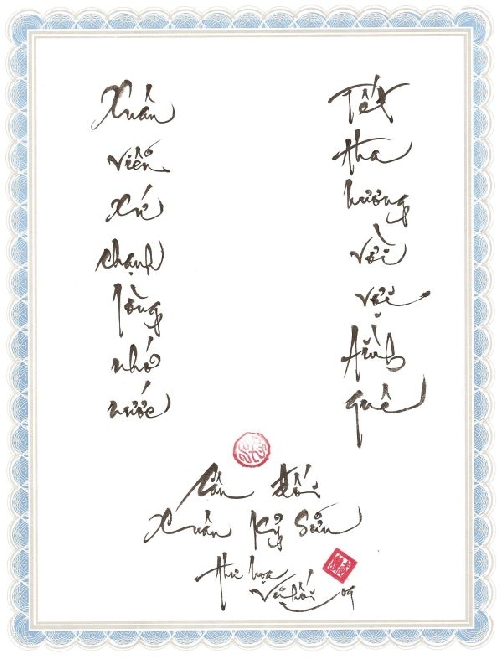 Xuân
viễn
xứ
chạnh
lòng
nhớ
nước
Tết
tha
hương
vời
vợi
tình
quê
Câu đối
Xuân Kỷ Sửu
Thư họa
Vũ Hối 09